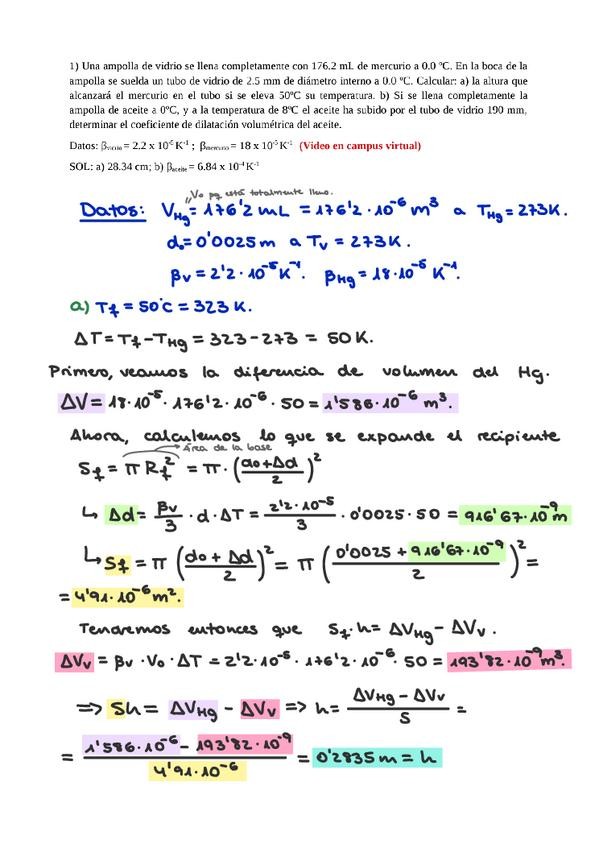 1) Una ampolla de vidrio se llena completamente con 176.2 mL de mercurio a 0.0 ºC. En la boca de la
ampolla se suelda un tubo de vidrio de 2.5 mm de diámetro interno a 0.0 ºC. Calcular: a) la altura que
alcanzará el mercurio en el tubo si se eleva 50ºC su temperatura. b) Si se llena completamente la
ampolla de aceite a 0ºC, y a la temperatura de 8ºC el aceite ha subido por el tubo de vidrio 190 mm,
determinar el coeficiente de dilatación volumétrica del aceite.
Datos: βvicrio = 2.2 x 10⁻⁵ K⁻¹ ; βmercurio = 18 x 10⁻⁵ K⁻¹ (Video en campus virtual)
SOL: a) 28.34 cm; b) βaceite = 6.84 x 10⁻⁴ K⁻¹
"Vo pq está totalmente lleno.
Datos: VHg = 176'2 mL = 176'2·10⁻⁶ m³ a THg = 273K.
do = 0'0025 m a Tv = 273K.
βv = 2'2·10⁻⁵ K⁻¹. βHg = 18·10⁻⁵ K⁻¹.
a) Tf = 50°C = 323 K.
ΔT = Tf - THg = 323 - 273 = 50 K.
Primero, veamos la diferencia de volumen del Hg.
ΔV = 18·10⁻⁵·176'2·10⁻⁶·50 = 1'586·10⁻⁶ m³.
Ahora, calculemos lo que se expande el recipiente
Área de la base
Sf = π Rf² = π·((do+Δd)/2)²
↳ Δd = βv/3 · d · ΔT = 2'2·10⁻⁵/3 · 0'0025 · 50 = 916'67·10⁻⁹ m
↳ Sf = π ((do + Δd)/2)² = π ((0'0025 + 916'67·10⁻⁹)/2)² =
= 4'91·10⁻⁶ m².
Tendremos entonces que Sf·h = ΔVHg - ΔVv.
ΔVv = βv · Vo · ΔT = 2'2·10⁻⁵ · 176'2·10⁻⁶ · 50 = 193'82·10⁻⁹ m³.
=> Sh = ΔVHg - ΔVv => h = (ΔVHg - ΔVv)/S =
= (1'586·10⁻⁶ - 193'82·10⁻⁹)/(4'91·10⁻⁶) = 0'2835 m = h